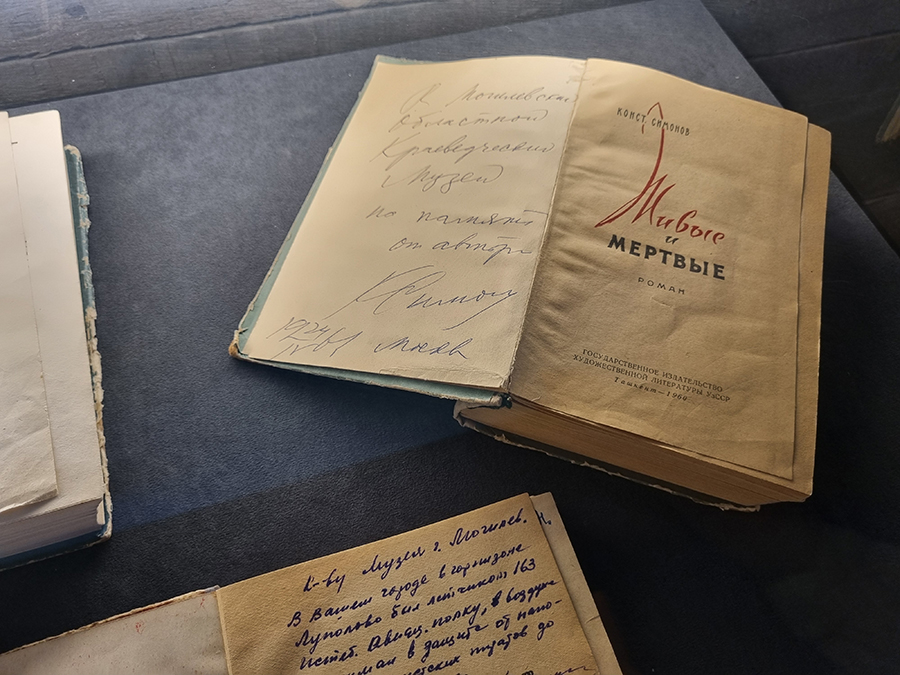 В Могилевский
областной
Краеведческий
Музей
на память
от автора
КСимонов
КОНСТ. СИМОНОВ
Живые
и
МЕРТВЫЕ
РОМАН
ГОСУДАРСТВЕННОЕ ИЗДАТЕЛЬСТВО
ХУДОЖЕСТВЕННОЙ ЛИТЕРАТУРЫ УзССР
Ташкент—1960
К-ву Музея г. Могилев.
В Вашем городе в гарнизоне
Луполово был летчиком 163
Истр. Авиац. полку, в воздухе
в защите от
до